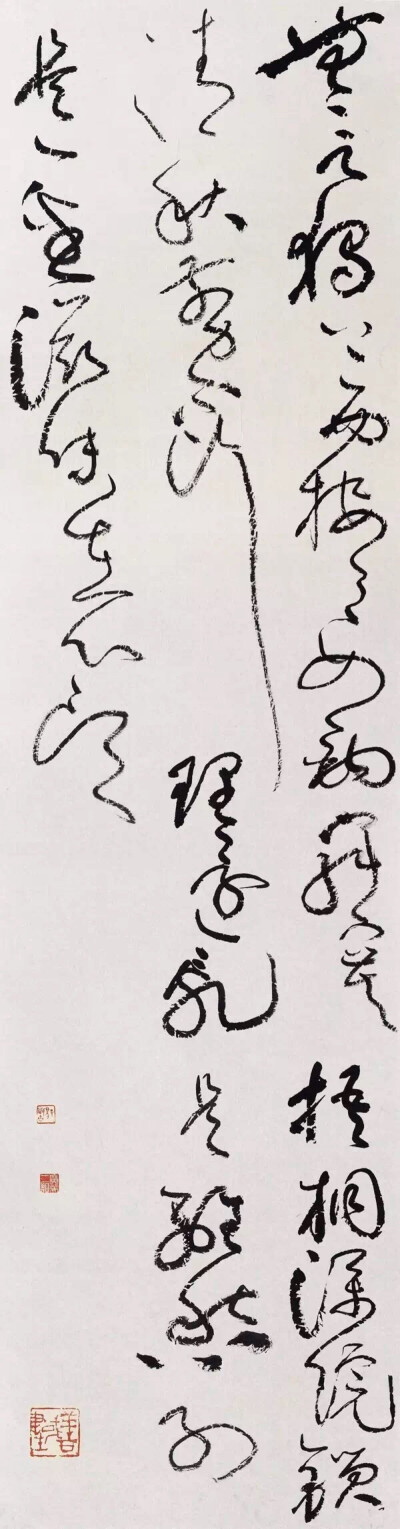 無言獨上西樓月如鉤寂寞梧桐深院鎖
清秋剪不斷理還亂是離愁別
是一番滋味在心頭